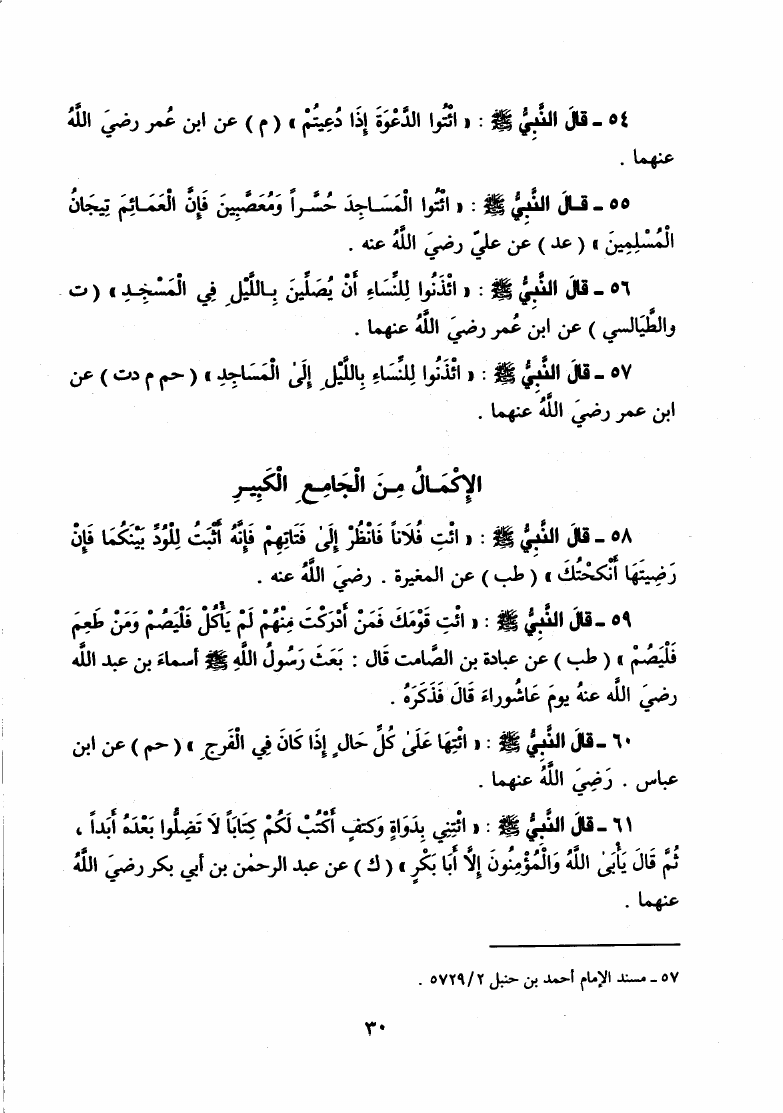 ٥٤ ـ قالَ النَّبِيُّ ﷺ : « ائْتُوا الدَّعْوَةَ إِذَا دُعِيتُمْ » ( م ) عن ابن عُمر رضيَ اللَّهُ
عنهما .
٥٥ ـ قـالَ النَّبِيُّ ﷺ : « ائْتُوا الْمَسَـاجِدَ حُسَّـراً وَمُعَصَّبِينَ فَإِنَّ الْعَمَـائِمَ تِيجَانُ
الْمُسْلِمِينَ » ( عد ) عن عليّ رضيَ اللَّهُ عنه .
٥٦ ـ قالَ النَّبِيُّ ﷺ : « ائْذَنُوا لِلنِّسَاءِ أَنْ يُصَلِّينَ بِـاللَّيْلِ فِي الْمَسْجِدِ » ( ت
والطَّيَالسي ) عن ابن عُمر رضيَ اللَّهُ عنهما .
٥٧ ـ قالَ النَّبِيُّ ﷺ : « ائْذَنُوا لِلنِّسَاءِ بِاللَّيْلِ إِلَىٰ الْمَسَاجِدِ » ( حم م دت ) عن
ابن عمر رضيَ اللَّهُ عنهما .
الإِكْمَـالُ مِـنَ الْجَامِـعِ الْكَبِيـرِ
٥٨ ـ قالَ النَّبِيُّ ﷺ : « ائْتِ فُلَاناً فَانْظُرْ إِلَىٰ فَتَاتِهِمْ فَإِنَّهُ أَثْبَتُ لِلْوُدِّ بَيْنَكُمَا فَإِنْ
رَضِيَتَهَا أَنْكَحْتُكَ » ( طب ) عن المغيرة . رضيَ اللَّهُ عنه .
٥٩ ـ قالَ النَّبِيُّ ﷺ : « ائْتِ قَوْمَكَ فَمَنْ أَدْرَكْتَ مِنْهُمْ لَمْ يَأْكُلْ فَلْيَصُمْ وَمَنْ طَعِمَ
فَلْيَصُمْ » ( طب ) عن عبادة بن الصَّامت قال : بَعَثَ رَسُولُ اللَّهِ ﷺ أسماءَ بن عبد اللَّه
رضيَ اللَّه عنهُ يومَ عَاشُوراءَ قَالَ فَذَكَرَهُ .
٦٠ ـ قالَ النَّبِيُّ ﷺ : « ائْتِهَا عَلَىٰ كُلِّ حَالٍ إِذَا كَانَ فِي الْفَرجِ » ( حم ) عن ابن
عباس . رَضِيَ اللَّهُ عنهما .
٦١ ـ قالَ النَّبِيُّ ﷺ : « ائْتِنِي بِدَوَاةٍ وَكتفٍ أَكْتُبْ لَكُمْ كِتَاباً لَا تَضِلُّوا بَعْدَهُ أَبَداً ،
ثُمَّ قَالَ يَأْبَىٰ اللَّهُ وَالْمُؤْمِنُونَ إِلَّا أَبَا بَكْرٍ » ( ك ) عن عبد الرحمٰن بن أبي بكر رضيَ اللَّهُ
عنهما .
٥٧ ـ مسند الإمام أحمد بن حنبل ٥٧٢٩/٢ .
٣٠